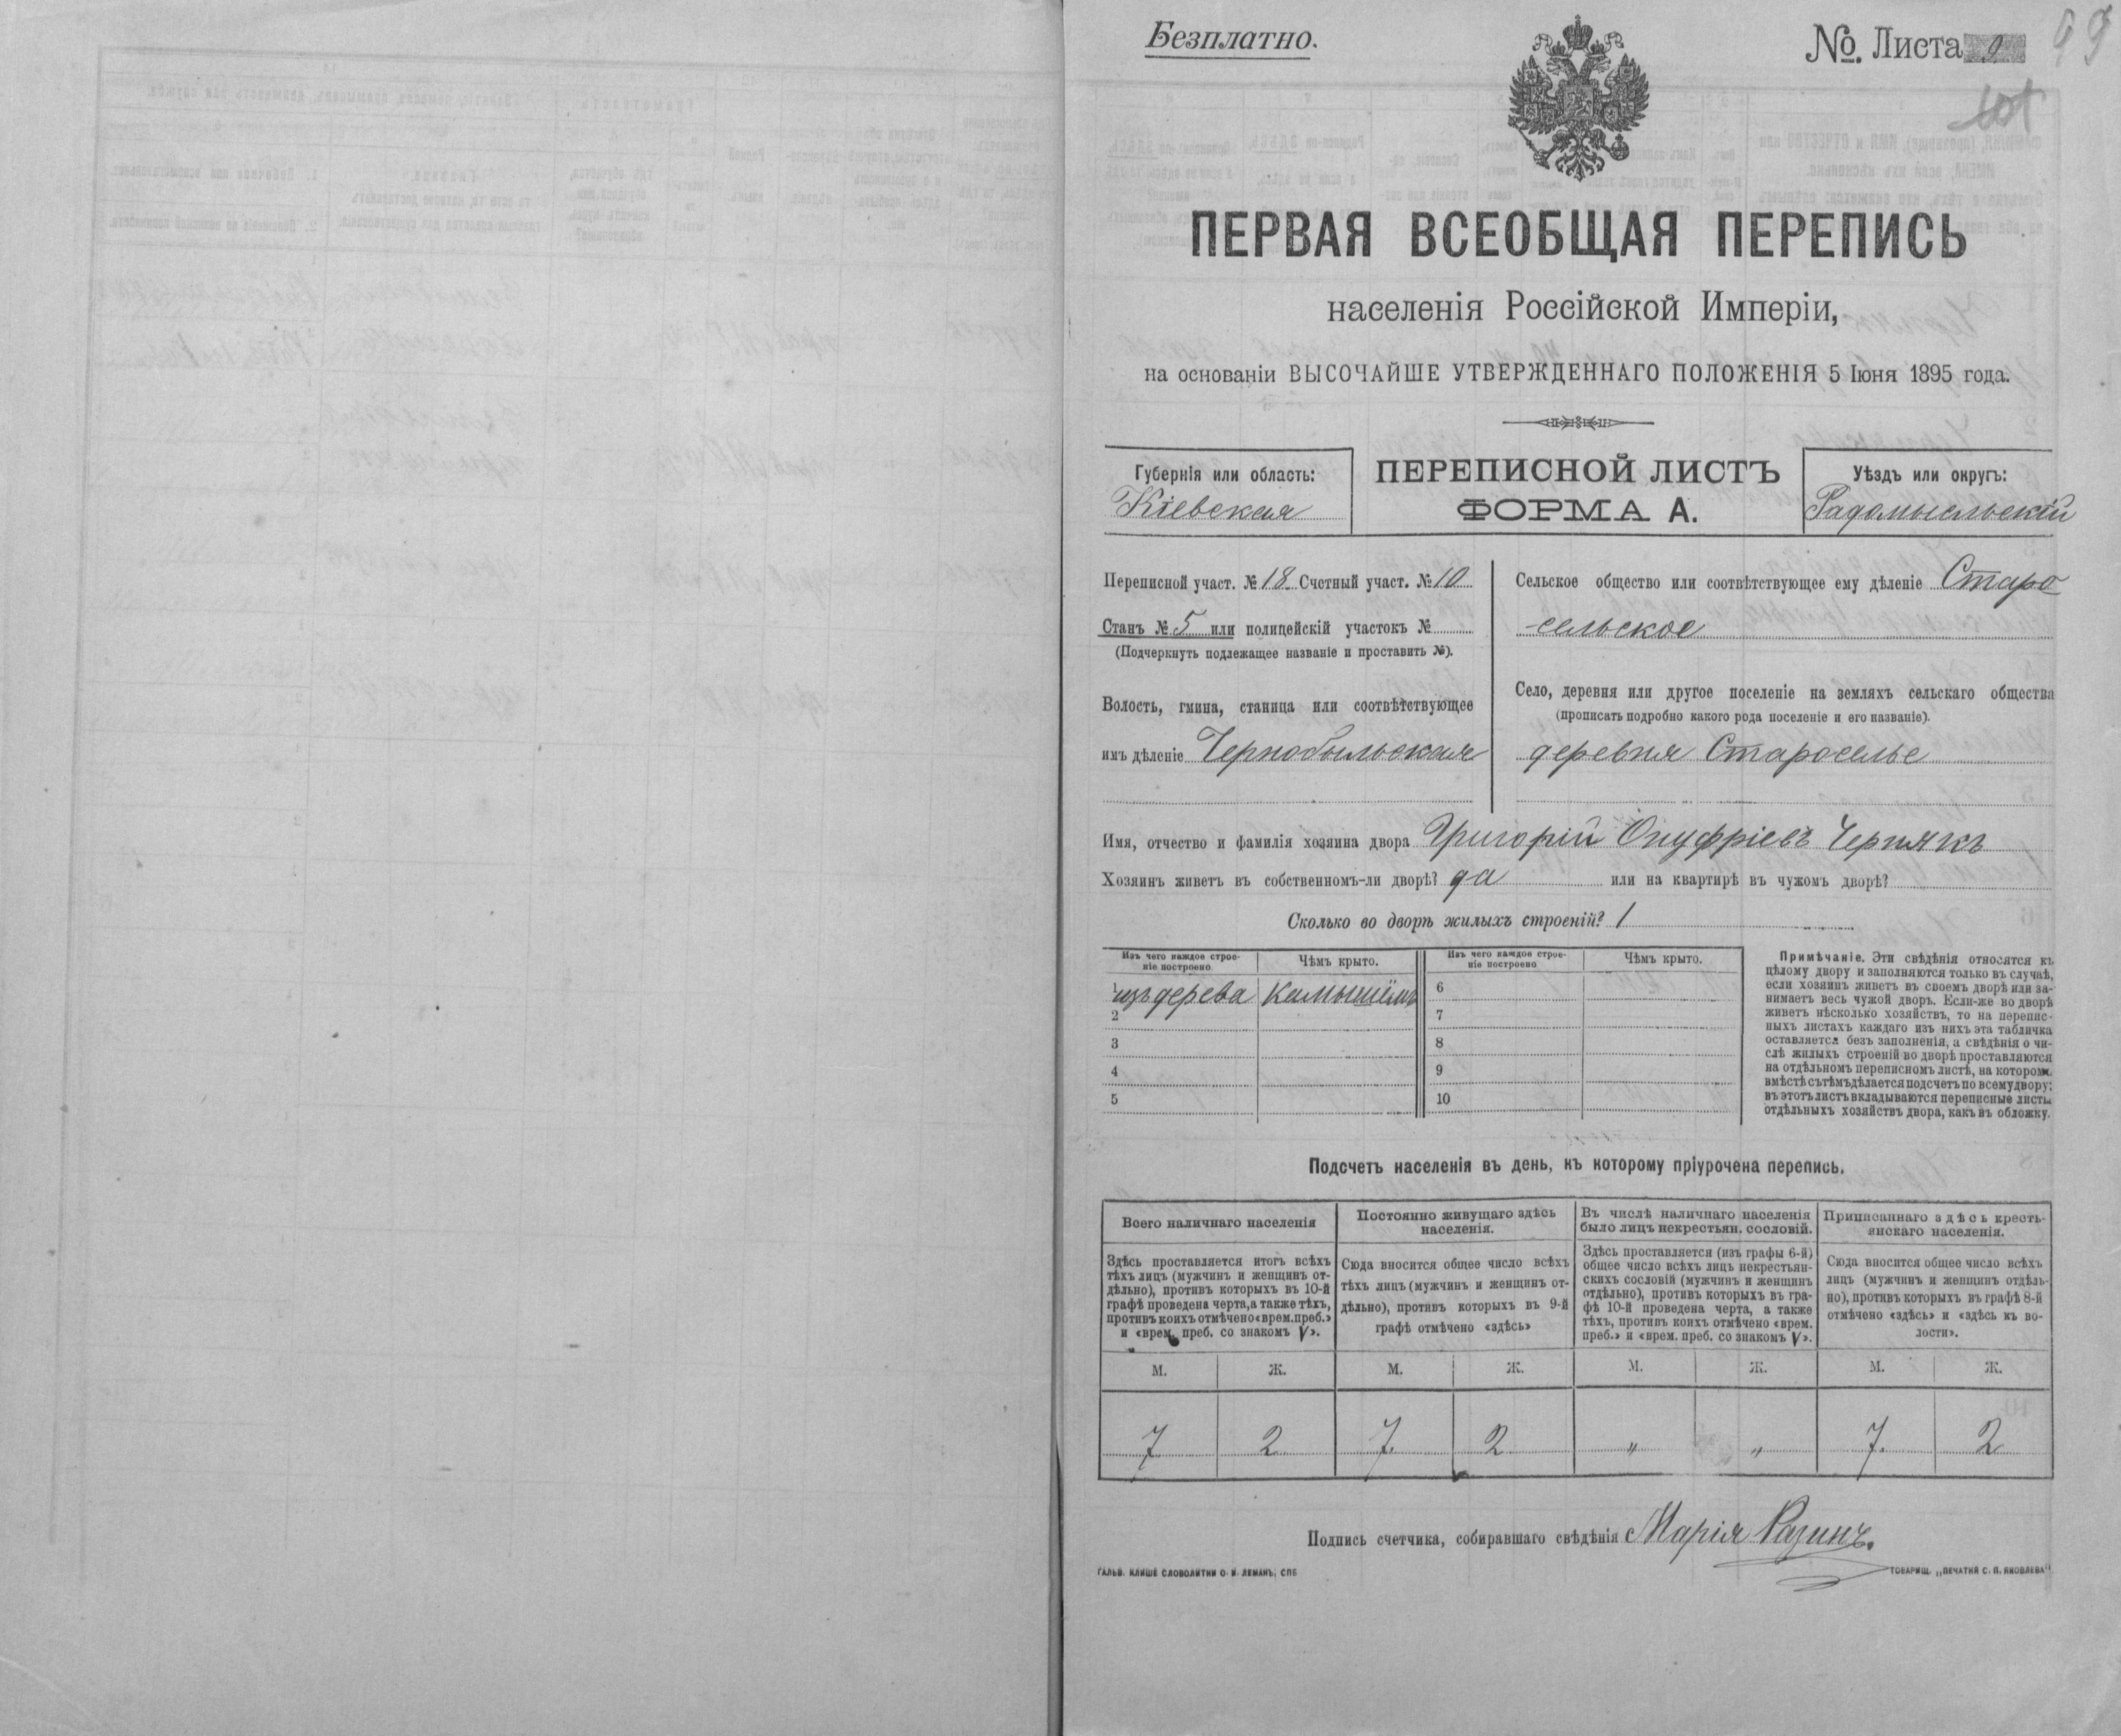 Безплатно.
№ Листа 9
99
101
ПЕРВАЯ ВСЕОБЩАЯ ПЕРЕПИСЬ
населенія Россійской Имперіи,
на основаніи ВЫСОЧАЙШЕ УТВЕРЖДЕННАГО ПОЛОЖЕНІЯ 5 Іюня 1895 года.
Губернія или область:
Кіевская
ПЕРЕПИСНОЙ ЛИСТЪ
ФОРМА А.
Уѣздъ или округъ:
Радомысльскій
Переписной участ. № 18 Счетный участ. № 10
Станъ № 5 или полицейскій участокъ №
(Подчеркнуть подлежащее названіе и проставить №).
Волость, гмина, станица или соотвѣтствующее
имъ дѣленіе Чернобыльская
Сельское общество или соотвѣтствующее ему дѣленіе Старо
-сельское
Село, деревня или другое поселеніе на земляхъ сельскаго общества
(прописать подробно какого рода поселеніе и его названіе).
деревня Староселье
Имя, отчество и фамилія хозяина двора Григорій Онуфріевъ Чернякъ
Хозяинъ живетъ въ собственномъ-ли дворѣ? да или на квартирѣ въ чужомъ дворѣ?
Сколько во дворѣ жилыхъ строеній? 1
Изъ чего каждое строе-
ніе построено
Чѣмъ крыто.
Изъ чего каждое строе-
ніе построено
Чѣмъ крыто.
1 изъ дерева камышёмъ 6
2 7
3 8
4 9
5 10
Примѣчаніе. Эти свѣдѣнія относятся къ
цѣлому двору и заполняются только въ случаѣ,
если хозяинъ живетъ въ своемъ дворѣ или за-
нимаетъ весь чужой дворъ. Если-же во дворѣ
живетъ нѣсколько хозяйствъ, то на перепис-
ныхъ листахъ каждаго изъ нихъ эта табличка
оставляется безъ заполненія, а свѣдѣнія о чи-
слѣ жилыхъ строеній во дворѣ проставляются
на отдѣльномъ переписномъ листѣ, на которомъ
вмѣстѣ съ тѣмъ дѣлается подсчетъ по всему двору;
въ этотъ листъ вкладываются переписные листы
отдѣльныхъ хозяйствъ двора, какъ въ обложку.
Подсчетъ населенія въ день, къ которому пріурочена перепись.
Всего наличнаго населенія
Здѣсь проставляется итогъ всѣхъ
тѣхъ лицъ (мужчинъ и женщинъ от-
дѣльно), противъ которыхъ въ 10-й
графѣ проведена черта, а также тѣхъ,
противъ коихъ отмѣчено «врем. преб.»
и «врем. преб. со знакомъ V».
Постоянно живущаго здѣсь
населенія.
Сюда вносится общее число всѣхъ
тѣхъ лицъ (мужчинъ и женщинъ от-
дѣльно), противъ которыхъ въ 9-й
графѣ отмѣчено «здѣсь»
Въ числѣ наличнаго населенія
было лицъ некрестьян. сословій.
Здѣсь проставляется (изъ графы 6-й)
общее число всѣхъ лицъ некрестьян-
скихъ сословій (мужчинъ и женщинъ
отдѣльно), противъ которыхъ въ гра-
фѣ 10-й проведена черта, а также
тѣхъ, противъ коихъ отмѣчено «врем.
преб.» и «врем. преб. со знакомъ V».
Приписаннаго здѣсь кресть-
янскаго населенія.
Сюда вносится общее число всѣхъ
лицъ (мужчинъ и женщинъ отдѣль-
но), противъ которыхъ въ графѣ 8-й
отмѣчено «здѣсь» и «здѣсь къ во-
лости».
М. Ж. М. Ж. М. Ж. М. Ж.
7 2 7. 2 " " 7. 2
Подпись счетчика, собиравшаго свѣдѣнія Марія Разинъ.
ГАЛЬВ. КЛИШЕ СЛОВОЛИТНИ О. И. ЛЕМАНЪ, СПБ
ТОВАРИЩ. „ПЕЧАТНЯ С. П. ЯКОВЛЕВА"